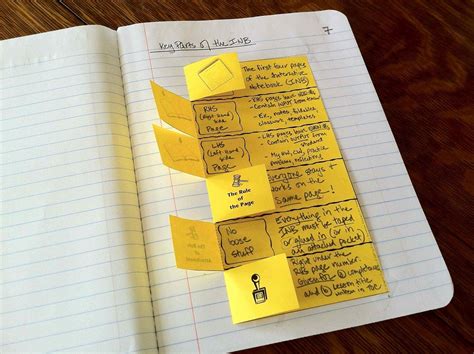 Key Parts of the INB
7
The first four pages
of the Interactive
Notebook (INB)
RHS
(Right-Hand)
side
Page
- RHS pages have
- Contain INPUT from
- Ex., notes, foldables,
classwork, templates
LHS
(Left-Hand)
side
Page
- LHS pages have
- Contain OUTPUT from
student
- My HW, CW, practice
problems, reflections
The Rule of
the Page
Everyone stays
works on the
same page!
No
loose
stuff
Everything in the
INB must be taped
or glued in (or in
an attached pocket)
Right under the
RHS page number.